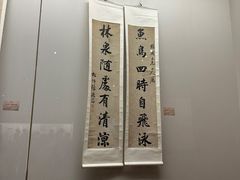 魚鳥四時自飛泳
林泉隨處有清涼